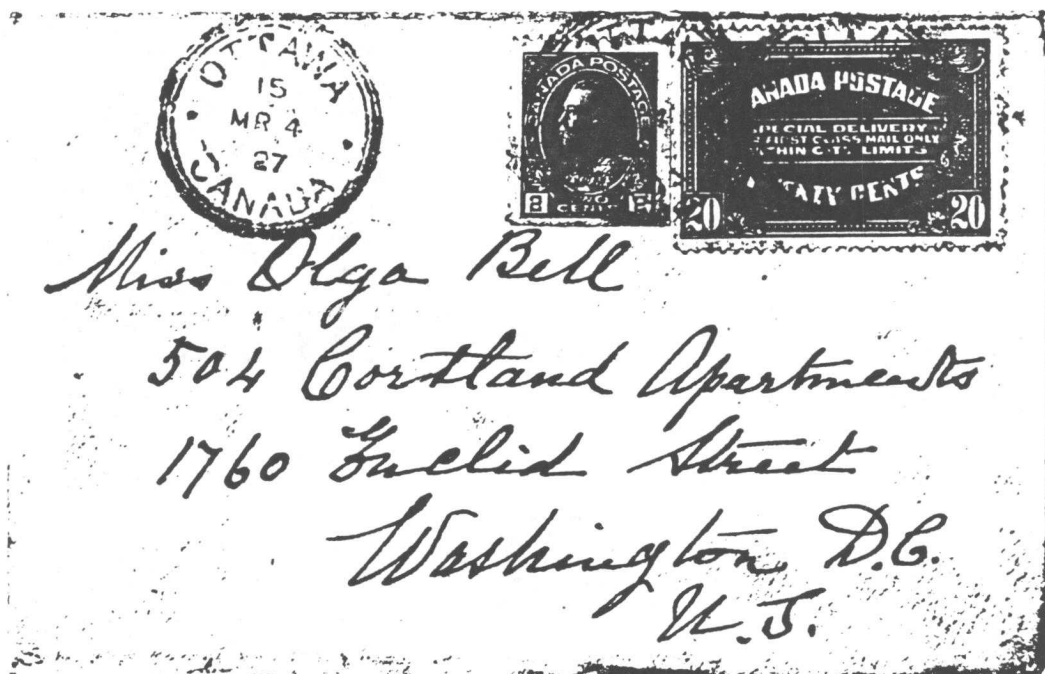 OTTAWA
15
MR 4
27
CANADA
CANADA POSTAGE
8 8
CENTS
ANADA POSTAGE
SPECIAL DELIVERY
FIRST CLASS MAIL ONLY
HIN CITY LIMITS
CENTS
20 20
Miss Olga Bell
504 Cortland Apartments
1760 Euclid Street
Washington D.C.
U.S.